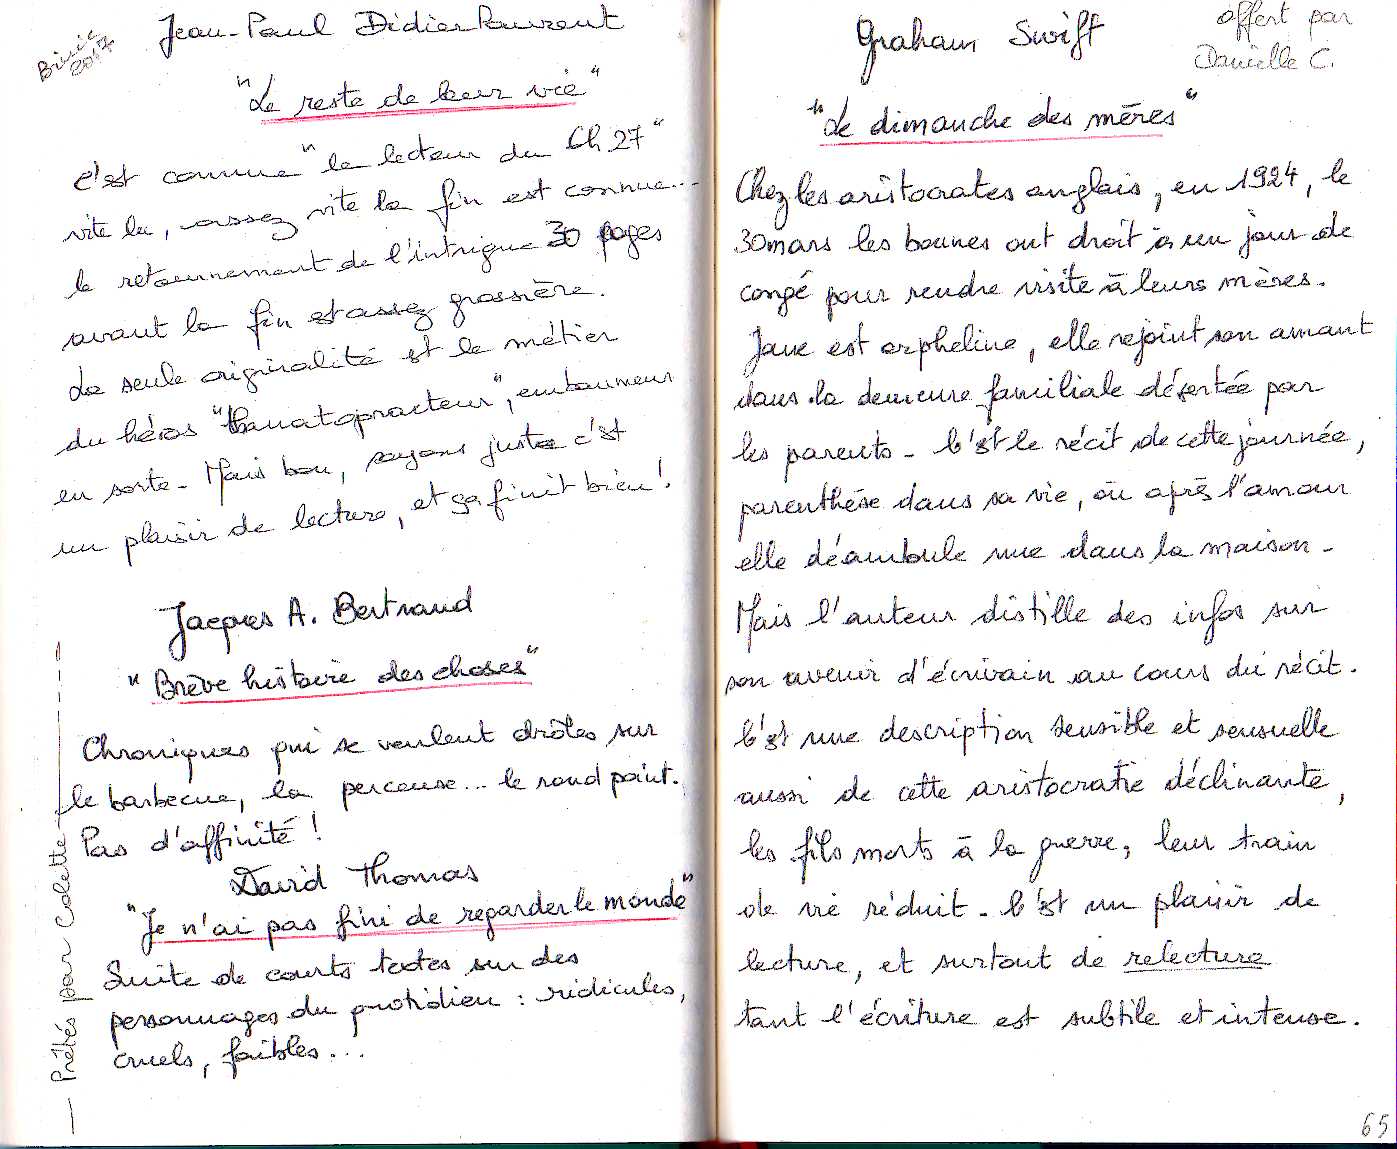 2017
Jean-Paul Didierlaurent
"Le reste de leur vie"
C'est comme "le lecteur du Ch 27"
vite lu, assez vite la fin est connue...
le retournement de l'intrigue 30 pages
avant la fin est assez grossière.
La seule originalité est le métier
du héros "thanatopracteur", embaumeur
en sorte - Mais bon, soyons juste c'est
un plaisir de lecture, et ça finit bien !
Jacques A. Bertrand
"Brève histoire des choses"
Chroniques qui se veulent drôles sur
le barbecue, la perceuse... le rond point.
Pas d'affinité !
David Thomas
"Je n'ai pas fini de regarder le monde"
Suite de courts textes sur des
personnages du quotidien : ridicules,
cruels, faibles...
— Prêtés par Colette —
offert par
Danielle C.
Graham Swift
"Le dimanche des mères"
Chez les aristocrates anglais, en 1924, le
30 mars les bonnes ont droit à un jour de
congé pour rendre visite à leurs mères.
Jane est orpheline, elle rejoint son amant
dans la demeure familiale désertée par
les parents - C'est le récit de cette journée,
parenthèse dans sa vie, où après l'amour
elle déambule nue dans la maison -
Mais l'auteur distille des infos sur
son avenir d'écrivain au cours du récit.
C'est une description sensible et sensuelle
aussi de cette aristocratie déclinante,
les fils morts à la guerre, leur train
de vie réduit - C'est un plaisir de
lecture, et surtout de relecture
tant l'écriture est subtile et intense.
65